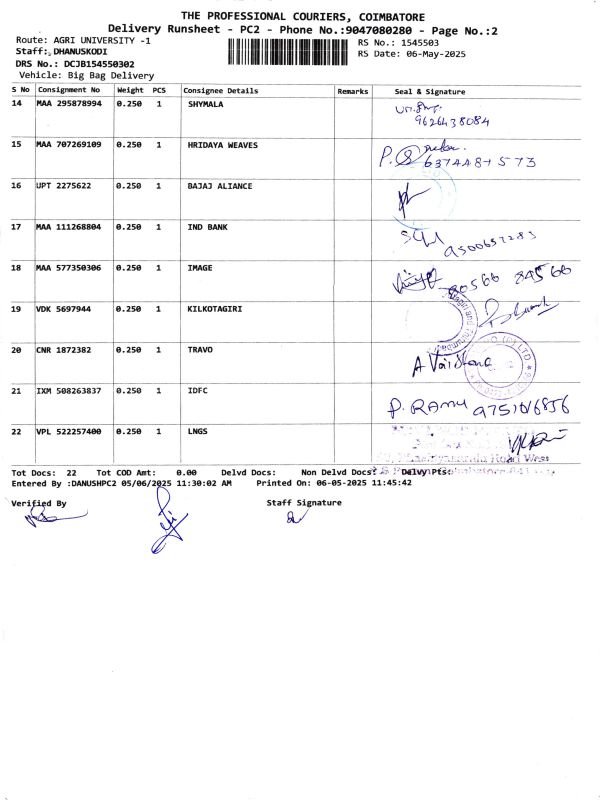 THE PROFESSIONAL COURIERS, COIMBATORE
Delivery Runsheet - PC2 - Phone No.:9047080280 - Page No.:2
Route: AGRI UNIVERSITY -1
Staff: DHANUSKODI
DRS No.: DCJB154550302
Vehicle: Big Bag Delivery
RS No.: 1545503
RS Date: 06-May-2025
S No Consignment No Weight PCS Consignee Details Remarks Seal & Signature
14 MAA 295878994 0.250 1 SHYMALA
9626438084
15 MAA 707269109 0.250 1 HRIDAYA WEAVES
6374481573
16 UPT 2275622 0.250 1 BAJAJ ALIANCE
17 MAA 111268804 0.250 1 IND BANK
9500657283
18 MAA 577350306 0.250 1 IMAGE
80566 84566
19 VDK 5697944 0.250 1 KILKOTAGIRI
20 CNR 1872382 0.250 1 TRAVO
21 IXM 508263837 0.250 1 IDFC
P. RAMU 9751016856
22 VPL 522257400 0.250 1 LNGS
Tot Docs: 22 Tot COD Amt: 0.00 Delvd Docs: Non Delvd Docs: Delvy Pts:
Entered By :DANUSHPC2 05/06/2025 11:30:02 AM Printed On: 06-05-2025 11:45:42
Verified By Staff Signature